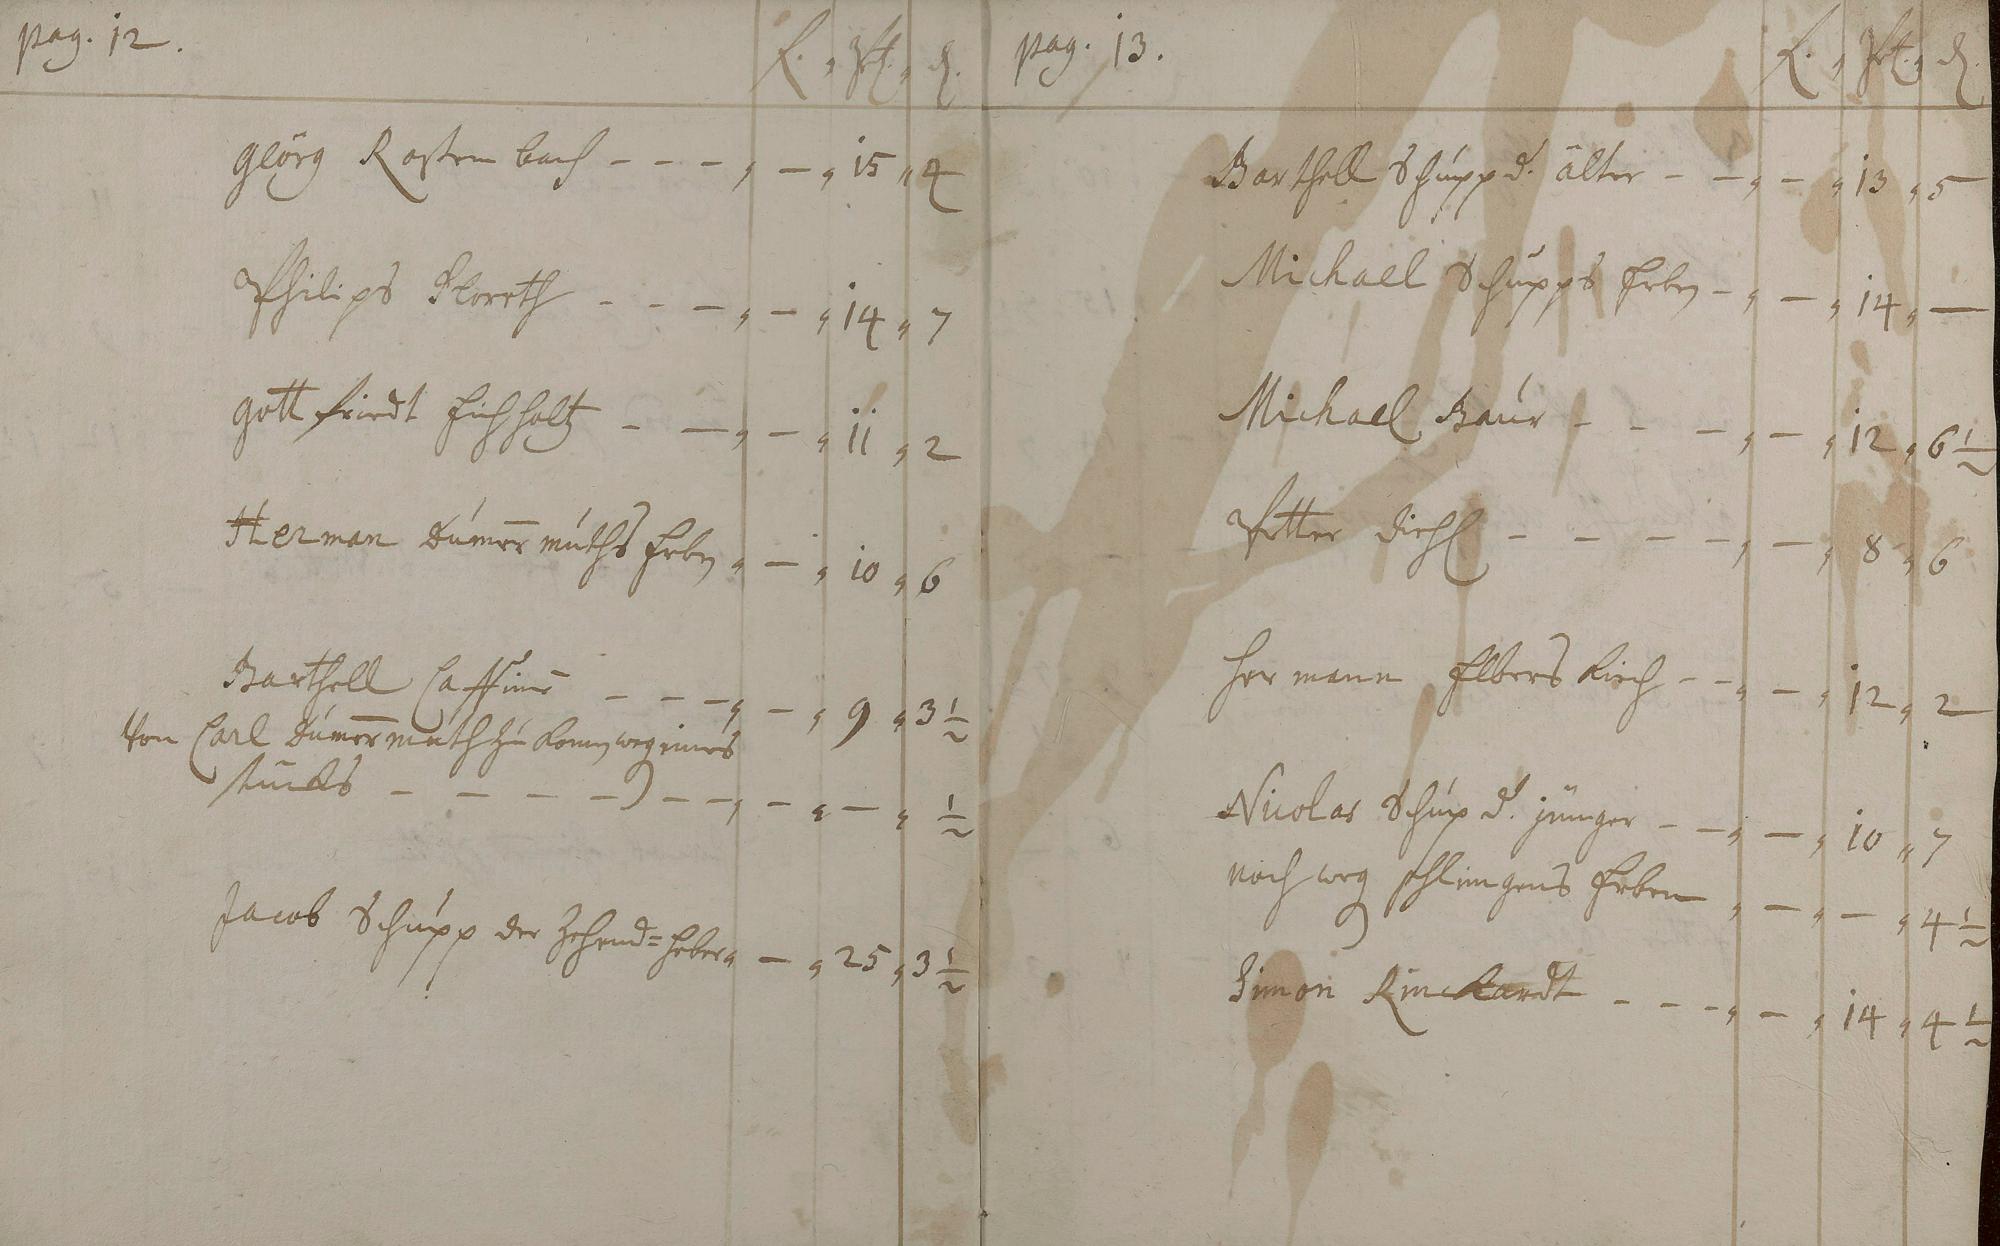 pag. 12.
Geörg Rosten bach - - - „ - „ 15 „ 4
Philips Floreth - - - „ - „ 14 „ 7
Gottfriedt Eichholtz - - „ - „ 11 „ 2
Herman Dúmermúths Erben „ - „ 10 „ 6
Barthell - - - „ - „ 9 „ 3 1/2
Von Carl Dúmermúth
stucks - - - - - - „ - „ - „ 1/2
Jacob Schúpp der Zehend= heber „ - „ 25 „ 3 1/2
pag. 13.
Barthell Schúpp d. älter - - „ - „ 13 „ 5
Michael Schúpps Erben - „ - „ 14 „ -
Michael Baúr - - - „ - „ 12 „ 6 1/2
Petter Diehl - - - - „ - „ 8 „ 6
Hermann Elbers Kirch - - „ - „ 12 „ 2
Nicolas Schúp d. jünger - - „ - „ 10 „ 7
noch weg Erben „ - „ - „ 4 1/2
Simon Rinckardt - - - „ - „ 14 „ 4 1/2